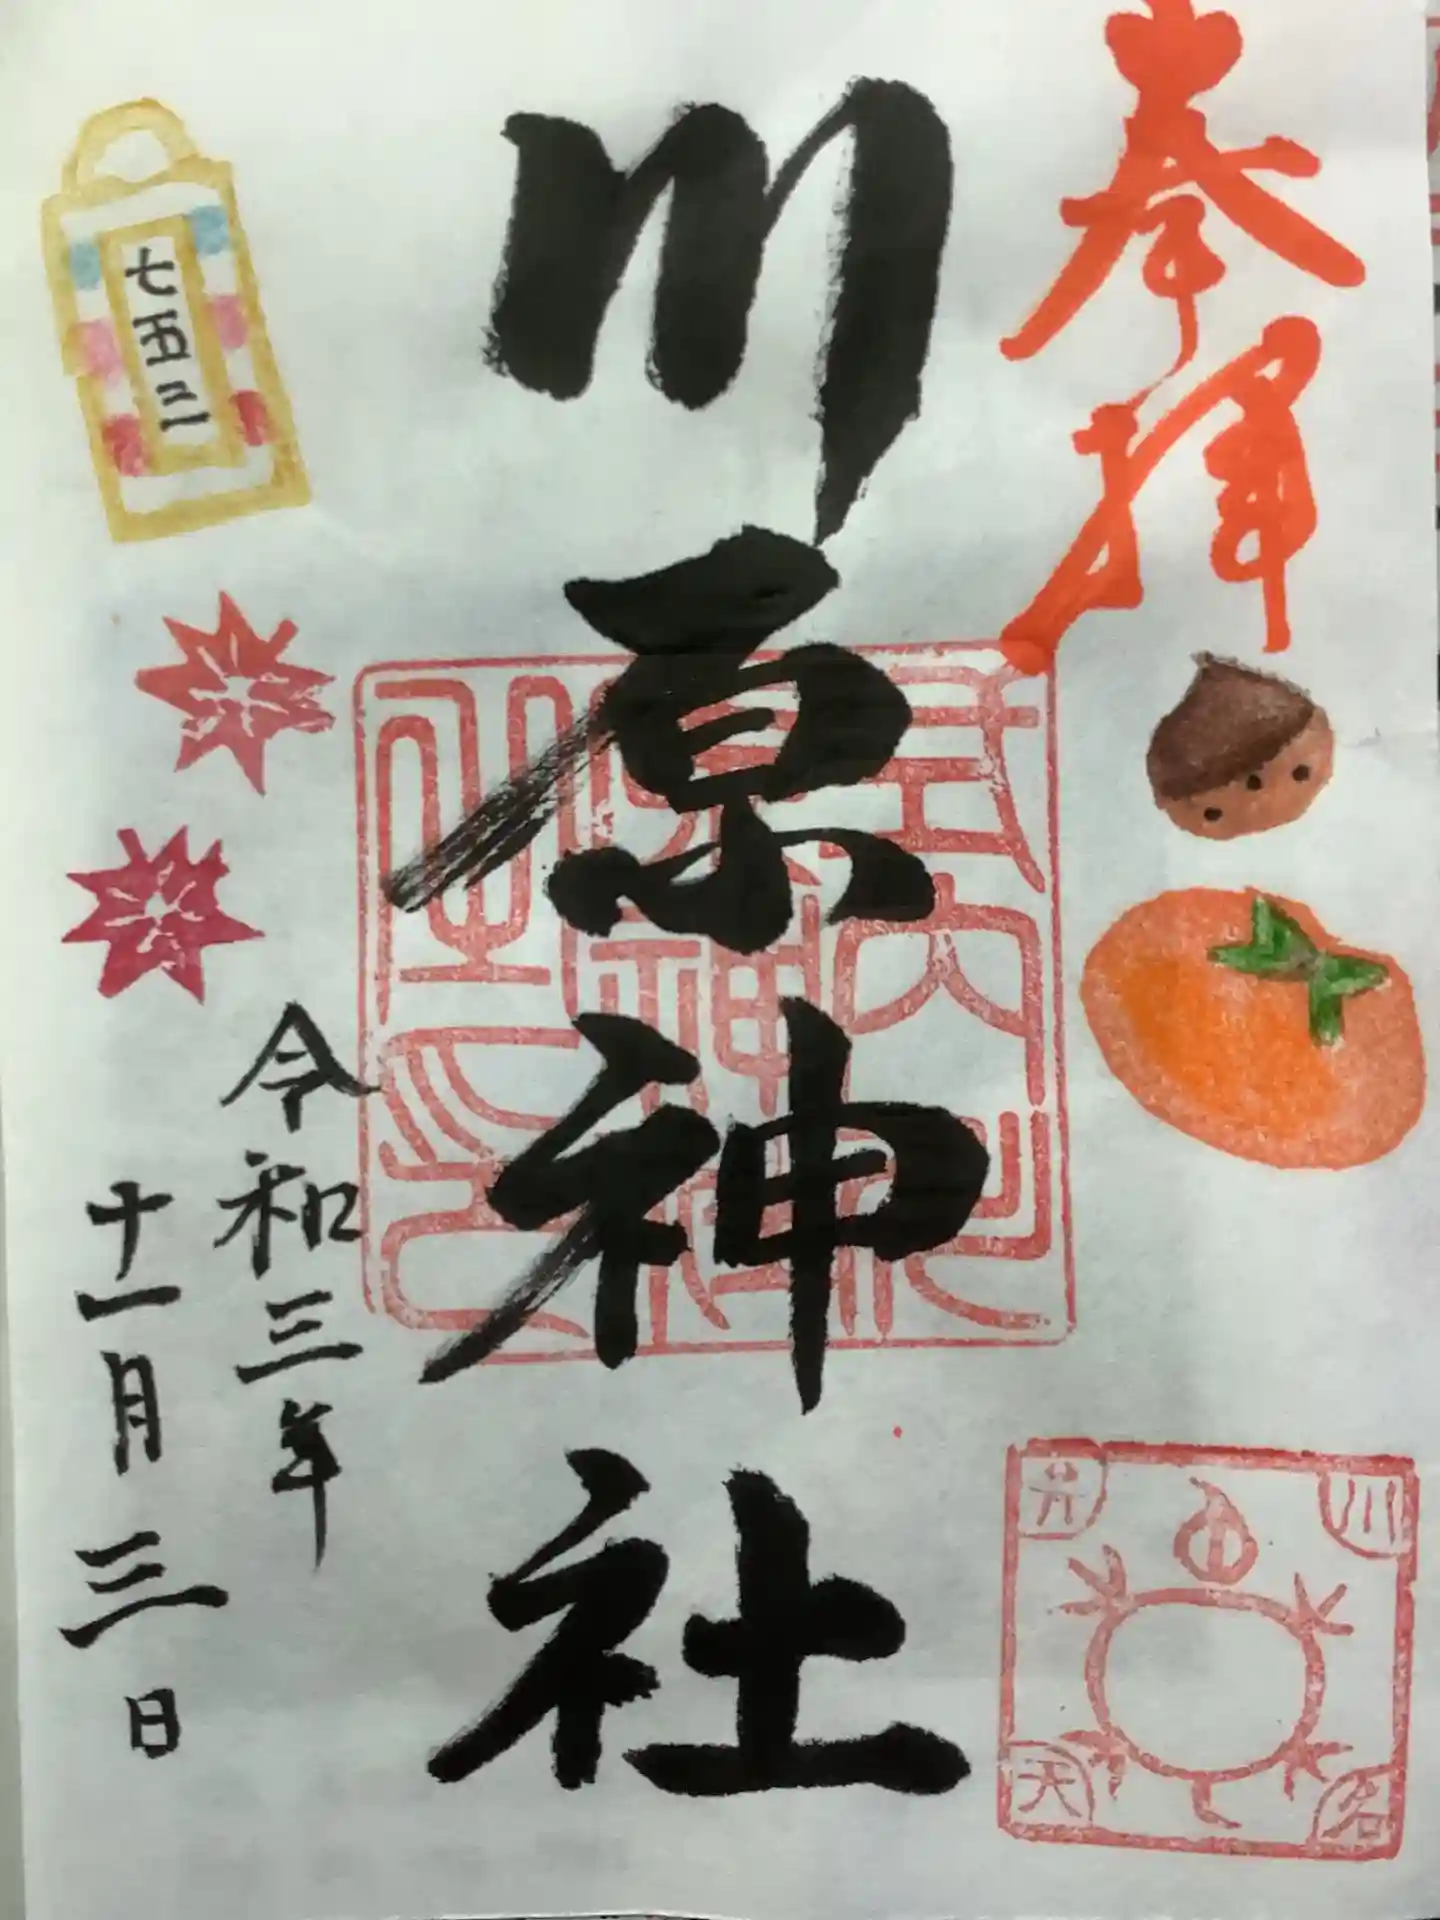 奉拝
川原神社
七五三
令和三年
十一月三日
川
名
弁
天